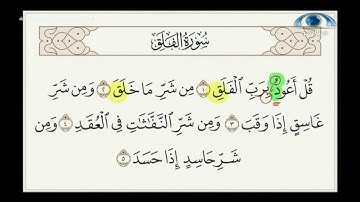 سُورَةُ الفَلَقِ
قُلْ أَعُوذُ بِرَبِّ ٱلْفَلَقِ ١ مِن شَرِّ مَا خَلَقَ ٢ وَمِن شَرِّ
غَاسِقٍ إِذَا وَقَبَ ٣ وَمِن شَرِّ ٱلنَّفَّـٰثَـٰتِ فِي ٱلْعُقَدِ ٤ وَمِن
شَرِّ حَاسِدٍ إِذَا حَسَدَ ٥